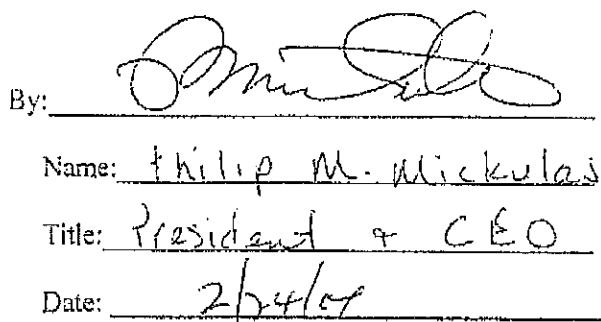 By:
Name: Philip M. Mickulas
Title: President + CEO
Date: 2/24/04